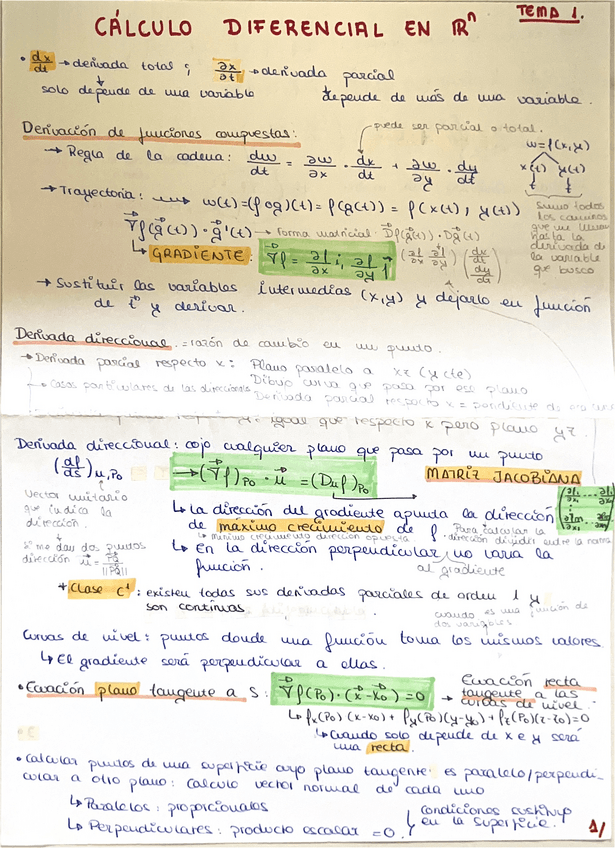 TEMA 1.
CÁLCULO DIFERENCIAL EN ℝⁿ
• dx/dt → derivada total ; ∂x/∂t → derivada parcial
solo depende de una variable ↓ depende de más de una variable.
Derivación de funciones compuestas:
puede ser parcial o total.
→ Regla de la cadena: dw/dt = ∂w/∂x · dx/dt + ∂w/∂y · dy/dt
w = f(x,y)
x(t) y(t)
→ Trayectoria: → w(t) = (f∘g)(t) = f(g(t)) = f(x(t), y(t))
Sumo todos
los caminos
que me llevan
hasta la
derivada de
la variable
que busco
∇f(g(t)) · g'(t) → forma matricial: Df(g(t)) · Dg(t)
↳ GRADIENTE: ∇f = ∂f/∂x i, ∂f/∂y j (∂f/∂x ∂f/∂y) (dx/dt dy/dt)
→ Sustituir las variables intermedias (x,y) y dejarlo en función
de t y derivar.
Derivada direccional. = razón de cambio en un punto.
→ Derivada parcial respecto x: Plano paralelo a xz (y cte)
Dibujo curva que pasa por ese plano
→ Casos particulares de las direccionales
Derivada parcial respecto x = pendiente de
igual que respecto x pero plano yz.
Derivada direccional: cojo cualquier plano que pasa por un punto
(df/ds)u,P₀ → (∇f)P₀ · u = (Duf)P₀
MATRIZ JACOBIANA
vector unitario
que indica la
dirección.
Si me dan dos puntos
dirección u = PQ/||PQ||
↳ La dirección del gradiente apunta la dirección
de máximo crecimiento de f
↳ mínimo crecimiento dirección opuesta
Para calcular la
dirección dividir entre la norma
↳ En la dirección perpendicular no varía la
función.
al gradiente
* Clase C¹: existen todas sus derivadas parciales de orden 1 y
son continuas
cuando es una función de
dos variables
Curvas de nivel: puntos donde una función toma los mismos valores.
↳ El gradiente será perpendicular a ellas.
• Ecuación plano tangente a S: ∇f(P₀) · (x - x₀) = 0 → Ecuación recta
tangente a las
curvas de nivel.
↳ fx(P₀)(x-x₀) + fy(P₀)(y-y₀) + fz(P₀)(z-z₀)=0
↳ Cuando solo depende de x e y será
una recta.
• Calcular puntos de una superficie cuyo plano tangente es paralelo/perpendi-
cular a otro plano: calculo vector normal de cada uno
↳ Paralelos: proporcionales
↳ Perpendiculares: producto escalar = 0.
condiciones sustituyo
en la superficie.
1/